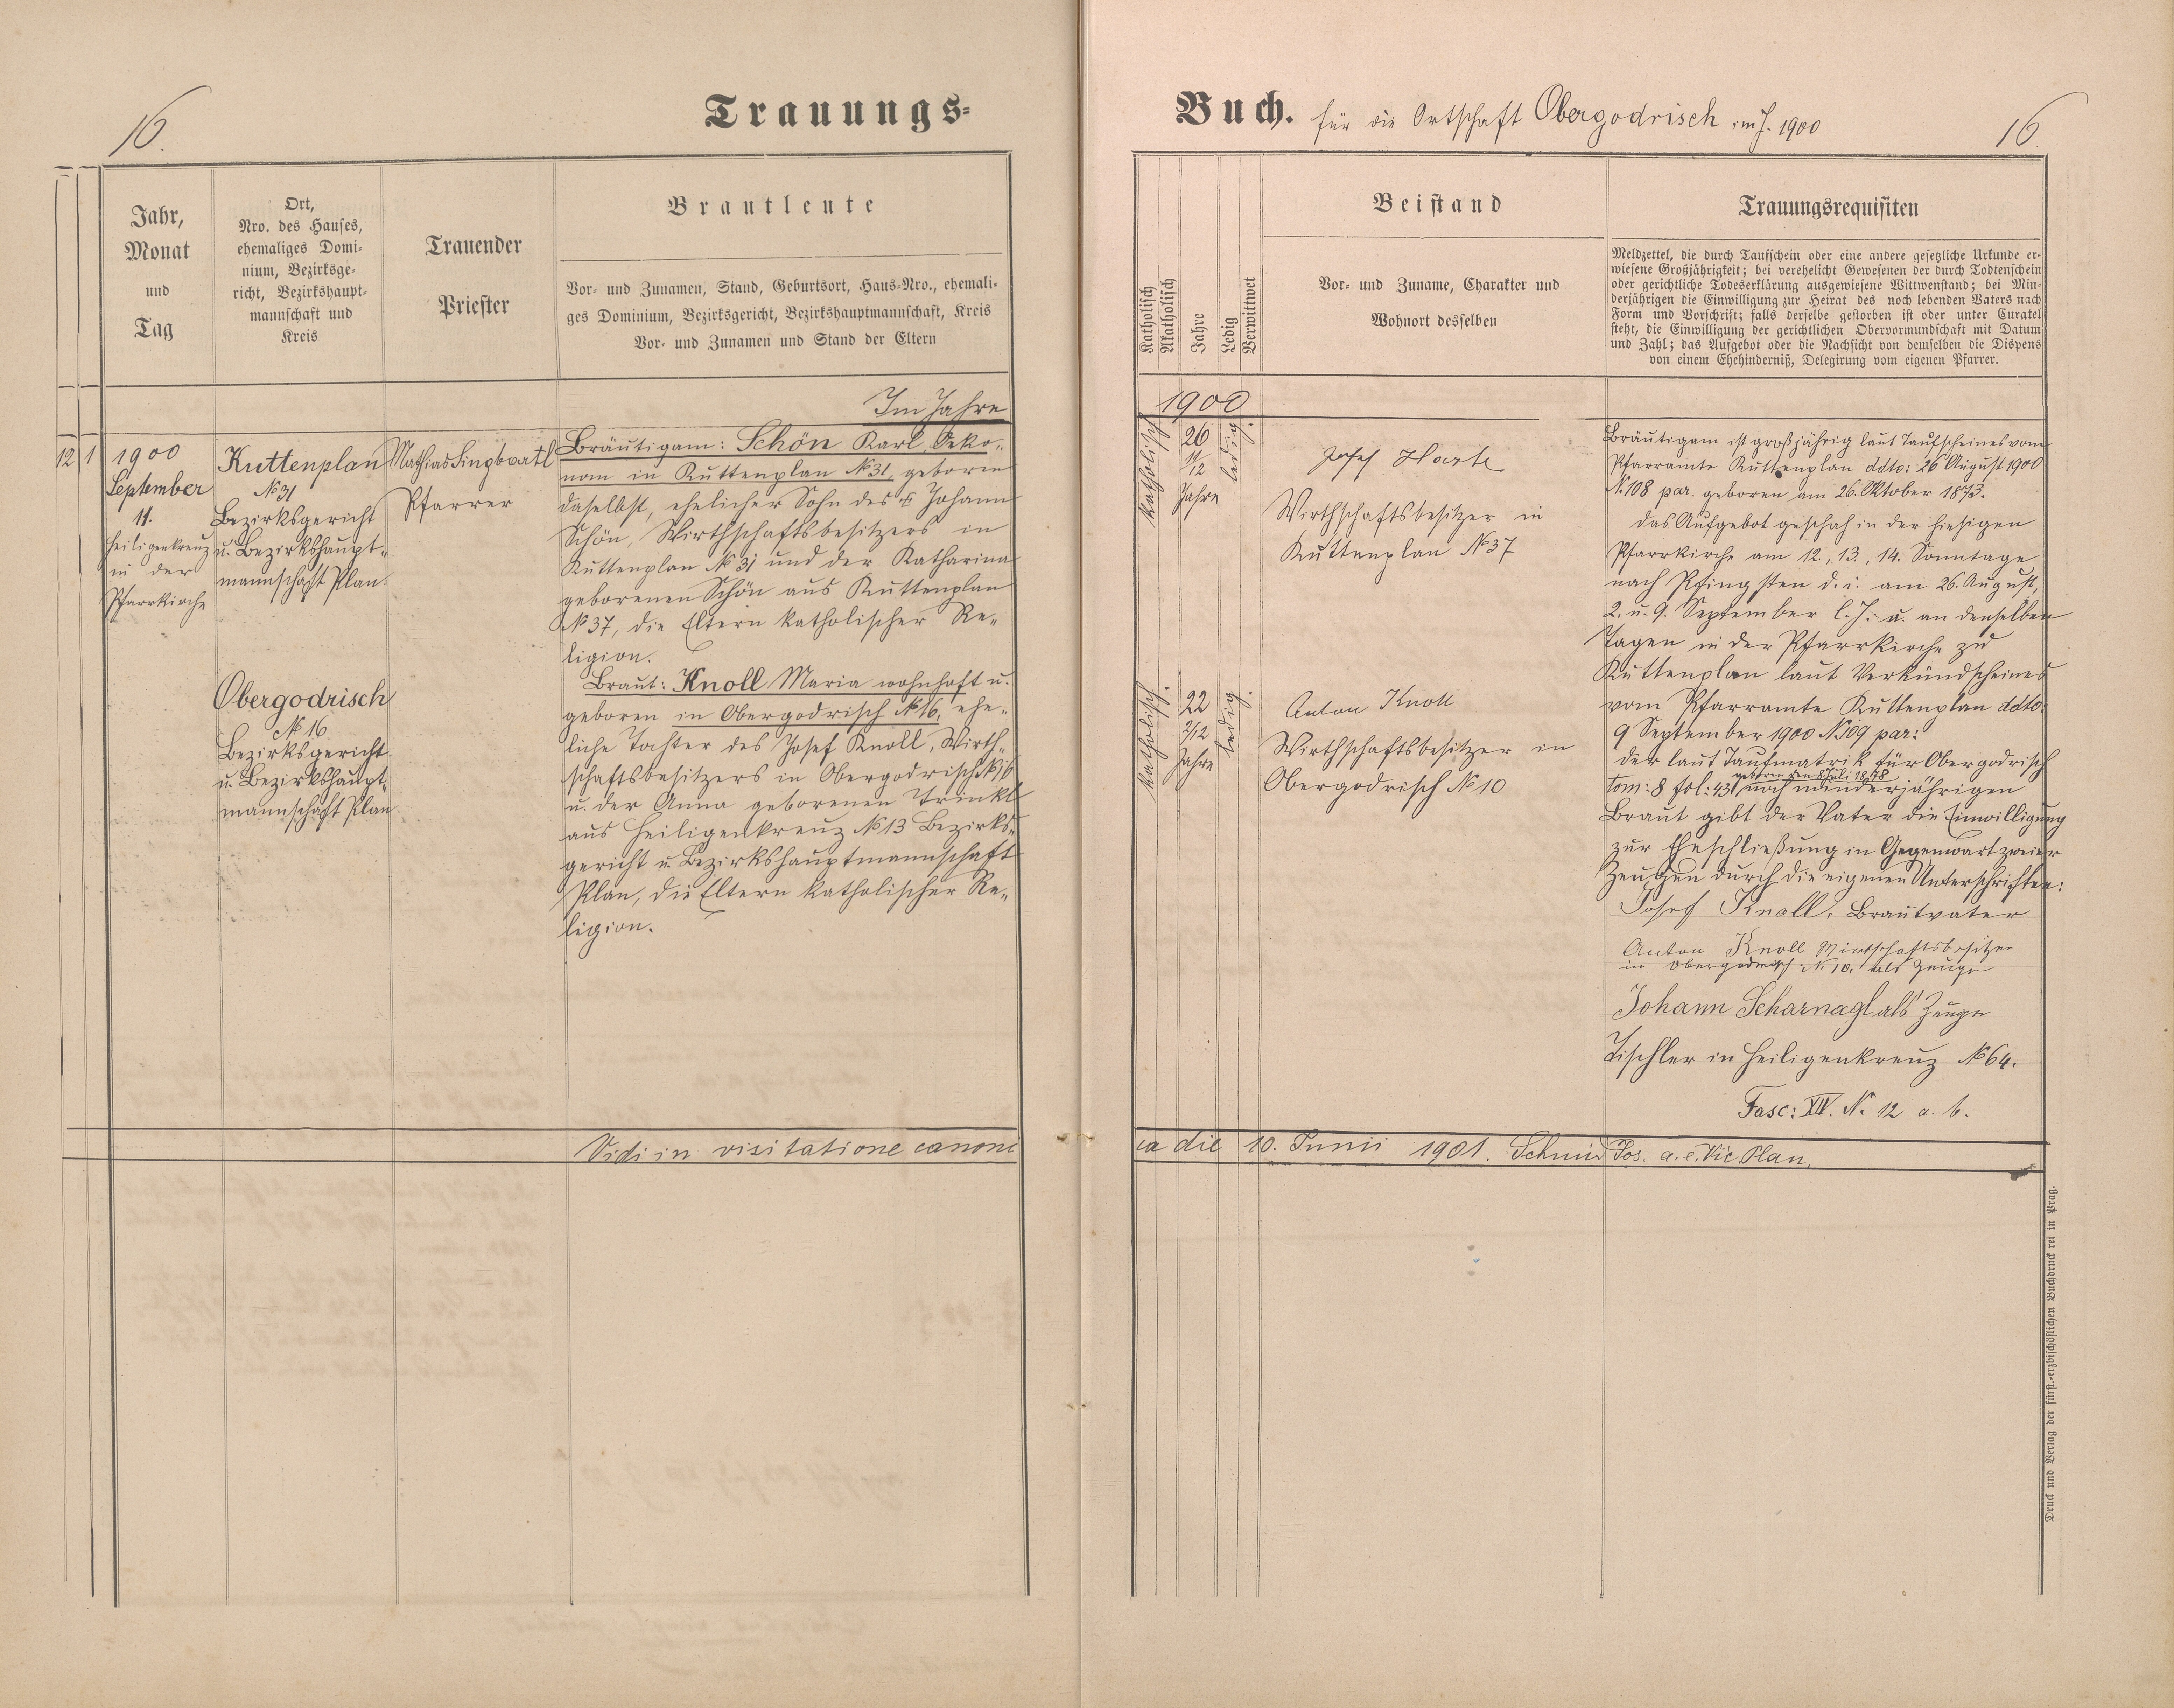 16.
Trauungs-
Jahr,
Monat
und
Tag
Ort,
Nro. des Hauses,
ehemaliges Domi-
nium, Bezirksge-
richt, Bezirkshaupt-
mannschaft und
Kreis
Trauender
Priester
Brautleute
Vor- und Zunamen, Stand, Geburtsort, Haus-Nro., ehemali-
ges Dominium, Bezirksgericht, Bezirkshauptmannschaft, Kreis
Vor- und Zunamen und Stand der Eltern
Im Jahre
12 1
1900
September
11.
Heiligenkreuz
in der
Pfarrkirche
Kuttenplan
№ 31
Bezirksgericht
u. Bezirkshaupt-
mannschaft Plan.
Obergodrisch
№ 16
Bezirksgericht
u. Bezirkshaupt-
mannschaft Plan
Mathias Singbartl
Pfarrer
Bräutigam: Schön Karl Oeko-
nom in Kuttenplan № 31, geboren
daselbst, ehelicher Sohn des † Johann
Schön, Wirthschaftsbesitzers in
Kuttenplan № 31 und der Katharina
geborenen Schön aus Kuttenplan
№ 37, die Eltern katholischer Re-
ligion.
Braut: Knoll Maria wohnhaft u.
geboren in Obergodrisch № 16, ehe-
liche Tochter des Josef Knoll, Wirth-
schaftsbesitzers in Obergodrisch № 16
u. der Anna geborenen Trinkl
aus Heiligenkreuz № 13 Bezirks-
gericht u. Bezirkshauptmannschaft
Plan, die Eltern katholischer Re-
ligion.
Vidi in visitatione canoni
Buch. für die Ortschaft Obergodrisch im J. 1900
16
Katholisch
Akatholisch
Jahre
Ledig
Verwittwet
Beistand
Vor- und Zuname, Charakter und
Wohnort desselben
Trauungsrequisiten
Meldzettel, die durch Taufschein oder eine andere gesetzliche Urkunde er-
wiesene Großjährigkeit; bei verehelicht Gewesenen der durch Todtenschein
oder gerichtliche Todeserklärung ausgewiesene Wittwenstand; bei Min-
derjährigen die Einwilligung zur Heirat des noch lebenden Vaters nach
Form und Vorschrift; falls derselbe gestorben ist oder unter Curatel
steht, die Einwilligung der gerichtlichen Obervormundschaft mit Datum
und Zahl; das Aufgebot oder die Nachsicht von demselben die Dispens
von einem Ehehinderniß, Delegirung vom eigenen Pfarrer.
1900
katholisch
26
11/12
Jahre
ledig.
Josef
Wirthschaftsbesitzer in
Kuttenplan № 37
katholisch.
22
2/12
Jahre
ledig.
Anton Knoll
Wirthschaftsbesitzer in
Obergodrisch № 10
Bräutigam ist großjährig laut Taufscheines vom
Pfarramte Kuttenplan ddto: 26 August 1900
N. 108 par. geboren am 26. Oktober 1873.
das Aufgebot geschah in der hiesigen
Pfarrkirche am 12., 13., 14. Sonntage
nach Pfingsten d. i. am 26. August,
2. u. 9. September l. J. u. an denselben
Tagen in der Pfarrkirche zu
Kuttenplan laut Verkündscheines
vom Pfarramte Kuttenplan ddto.
9 September 1900 N. 109 par:
der laut Taufmatrik für Obergodrisch
geboren den 8 Juli 1878
tom: 8 fol: 43, noch minderjährigen
Braut gibt der Vater die Einwilligung
zur Eheschließung in Gegenwart zweier
Zeugen durch die eigenen Unterschriften:
Josef Knoll, Brautvater
Anton Knoll Wirtschaftsbesitzer
in Obergodrisch N. 10. als Zeuge
Johann Scharnagl als Zeuge
Tischler in Heiligenkreuz № 64.
Fasc: XIV. N. 12 a. b.
ca die 10. Junii 1901. Schmid Jos. a. e. Vic Plan.
Druck und Verlag der fürst.-erzbischöflichen Buchdruckerei in Prag.